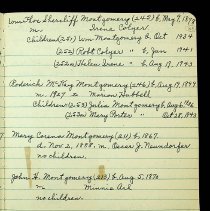 Wm Thos Shercliff Montgomery (245) b. May 7, 1898
m. Irene Colyer
Children (251) Wm Montgomery b. Oct 1934
(252) Robt Colyer " b. Jan 1941
(252a) Helen Irene " b. Aug 17, 1943
Roderick McKay Montgomery (246) b. Aug 19, 1899
m. 1927 to Marion Hubbell
Children (253) Julia Montgomery b. Aug
Mary Porter " Oct 28, 1943
Mary Corenna Montgomery (211) b. 1867
d. Nov 2, 1888. m. Oscar J. Neundorfer
no children.
John H. Montgomery b. Aug 5, 1870
m Minnie
no children